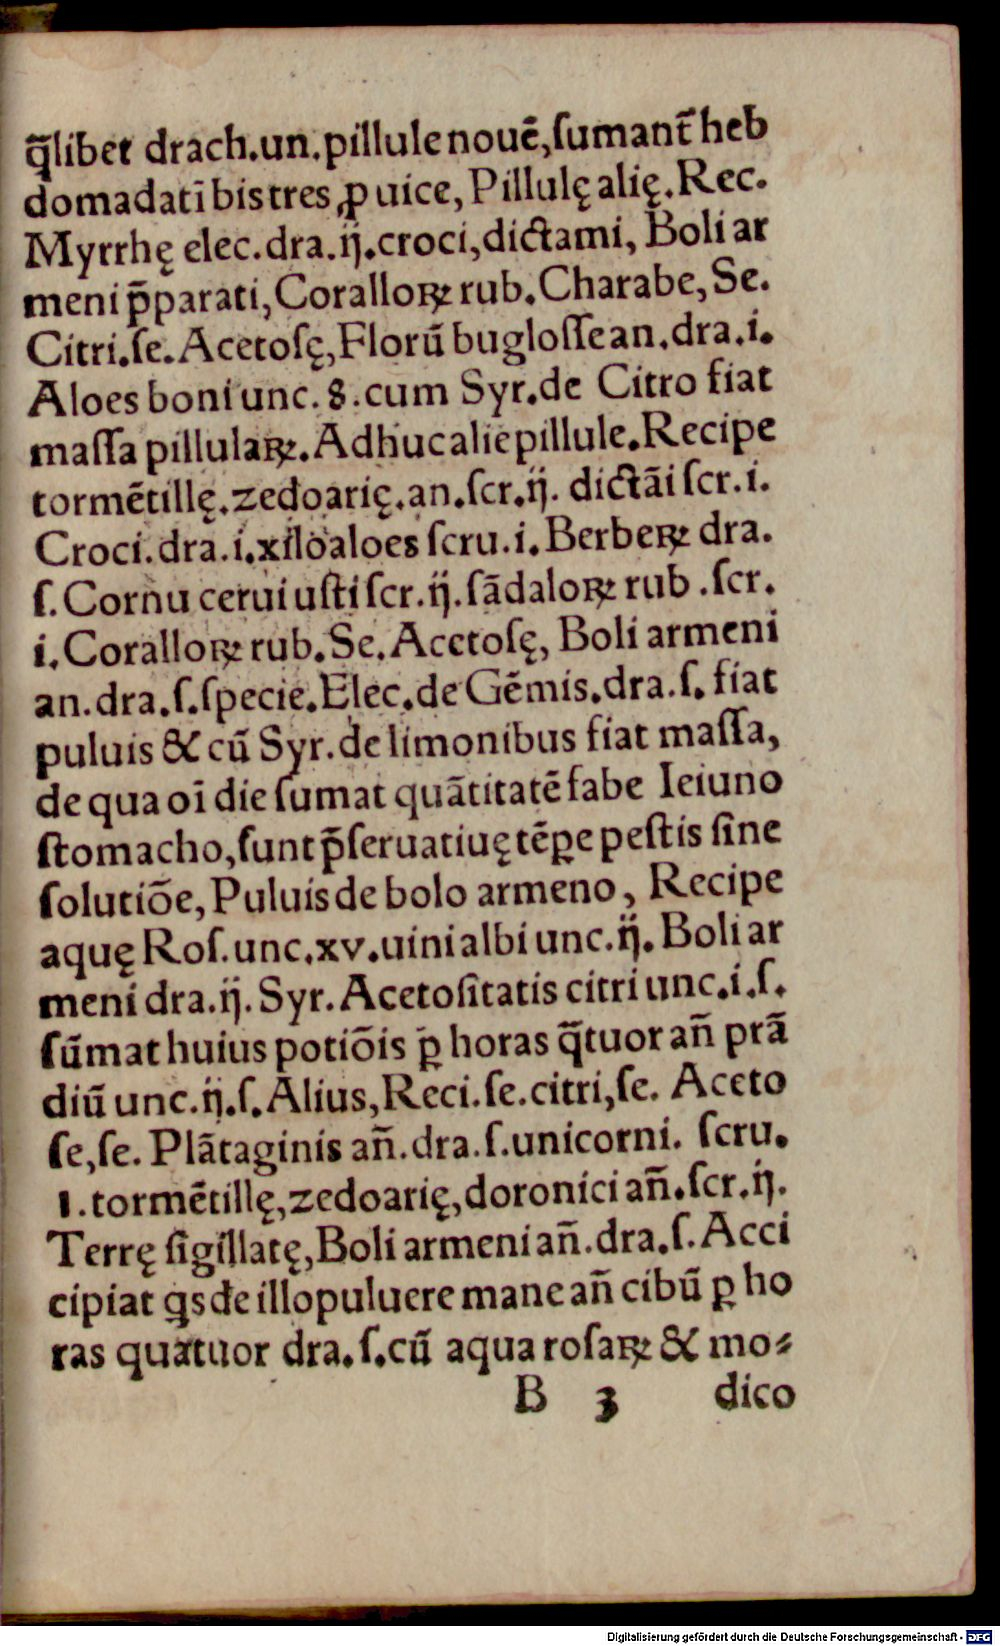 q̃libet drach.un.pillule nouẽ,ſumant̃ heb
domadatĩ bis tres ꝓ uice, Pillulę alię.Rec.
Myrrhę elec.dra.ij.croci,dictami, Boli ar
meni p̃parati,Coralloꝝ rub.Charabe,Se.
Citri.ſe.Acetoſę,Florũ bugloſſe an.dra.i.
Aloes boni unc.8.cum Syr.de Citro fiat
maſſa pillulaꝝ.Adhuc alie pillule.Recipe
tormẽtillę.zedoarię.an.ſcr.ij. dictãi ſcr.i.
Croci.dra.i.xiloaloes ſcru.i.Berbeꝝ dra.
ſ.Cornu cerui uſti ſcr.ij.ſãdaloꝝ rub.ſcr.
i.Coralloꝝ rub.Se.Acetoſę, Boli armeni
an.dra.ſ.ſpecie.Elec.de Gẽmis.dra.ſ. fiat
puluis & cũ Syr.de limonibus fiat maſſa,
de qua oĩ die ſumat quãtitatẽ fabe Ieiuno
ſtomacho,ſunt p̃ſeruatiuę tẽꝑe peſtis ſine
ſolutiõe,Puluis de bolo armeno, Recipe
aquę Roſ.unc.xv.uini albi unc.ij.Boli ar
meni dra.ij.Syr.Acetoſitatis citri unc.i.ſ.
ſũmat huius potiõis ꝑ horas q̃tuor añ prã
diũ unc.ij.ſ.Alius,Reci.ſe.citri,ſe. Aceto
ſe,ſe.Plãtaginis añ.dra.ſ.unicorni. ſcru.
1.tormẽtillę,zedoarię,doronici añ.ſcr.ij.
Terrę ſigillatę,Boli armeni añ.dra.ſ.Acci
cipiat qs de illo puluere mane añ cibũ ꝑ ho
ras quatuor dra.ſ.cũ aqua roſaꝝ & mo⸗
B 3 dico
Digitalisierung gefördert durch die Deutsche Forschungsgemeinschaft - DFG